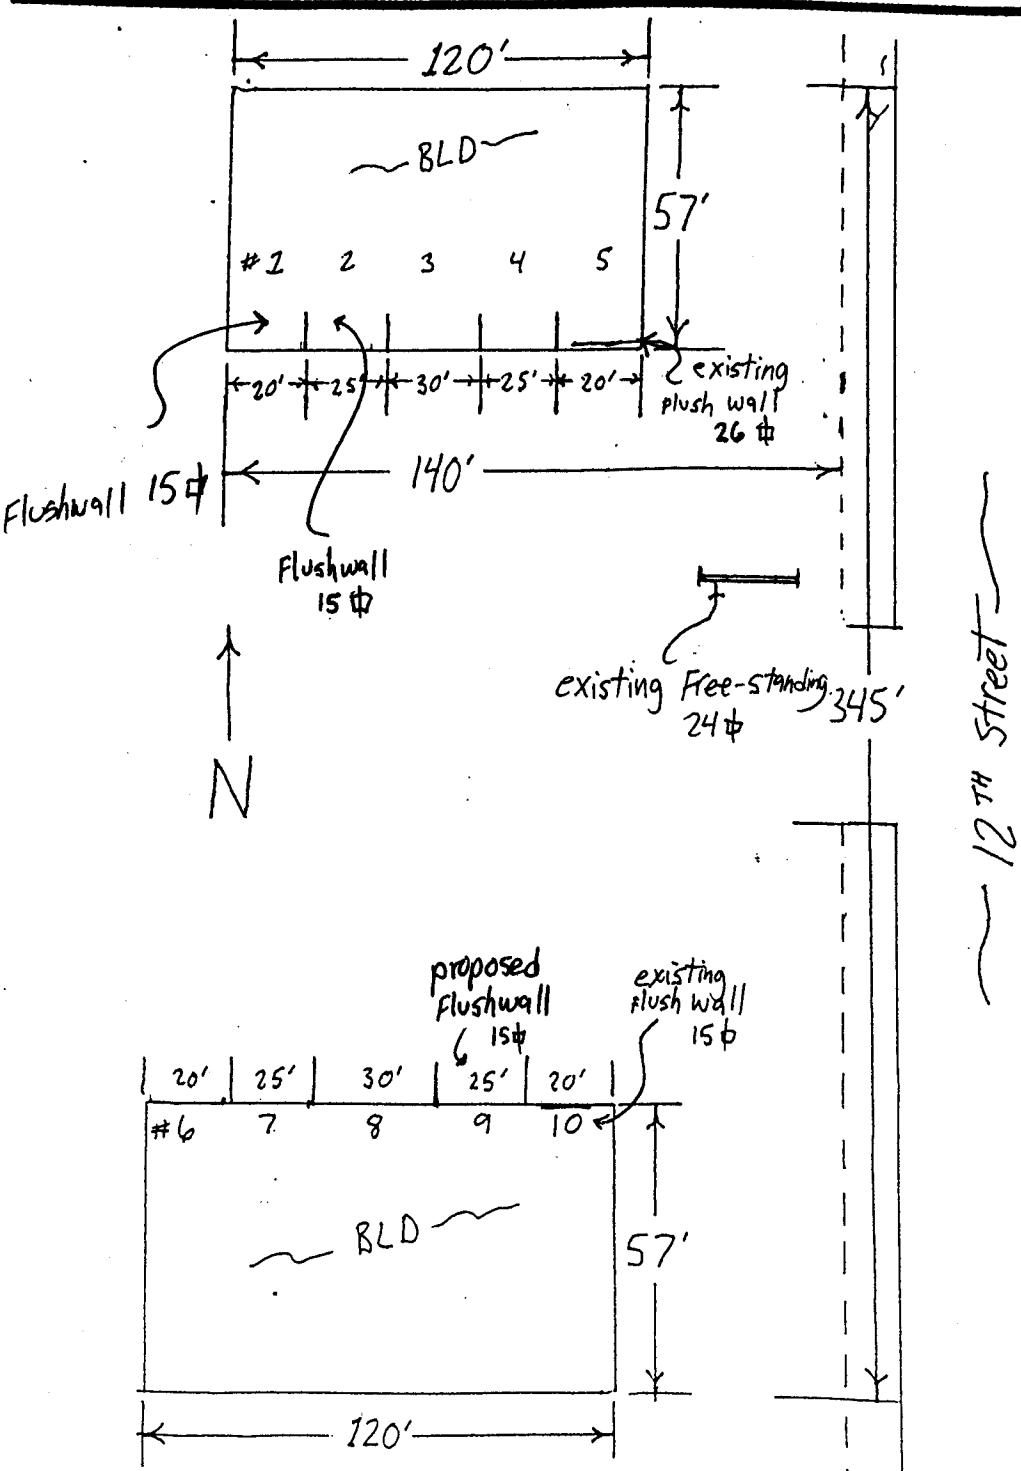 120'
BLD
57'
#1 2 3 4 5
20' 25' 30' 25' 20'
existing
plush wall
26 ⌑
140'
Flushwall 15 ⌑
Flushwall
15 ⌑
existing Free-standing
24 ⌑
345'
12TH Street
N
proposed
Flushwall
15 ⌑
existing
flush wall
15 ⌑
20' 25' 30' 25' 20'
#6 7 8 9 10
BLD
57'
120'